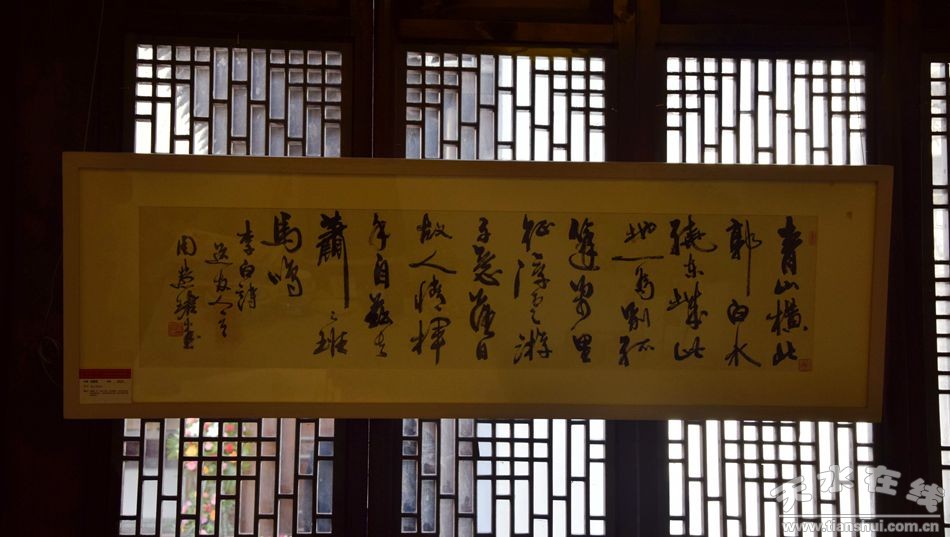 青山横北
郭白水
绕东城此
地一为别孤
蓬萬里
征浮云游
子意落日
故人情挥
手自兹去
蕭〻班
馬鸣
李白诗
送友人
周
天水在线
www.tianshui.com.cn